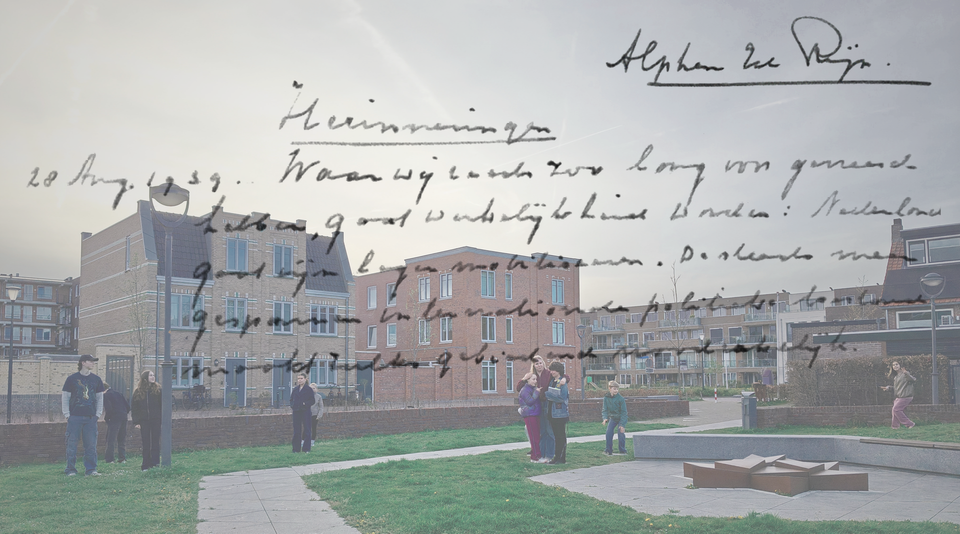 Alphen a/d Rijn.
Herinneringen
28 Aug. 1939. Waar wij reeds zoo lang van gevreesd
hebben, gaat werkelijkheid worden: Nederland
gaat zijn leger mobiliseeren. De steeds meer
gespannen internationale politieke toestand
maakt zulks gebiedend noodzakelijk.